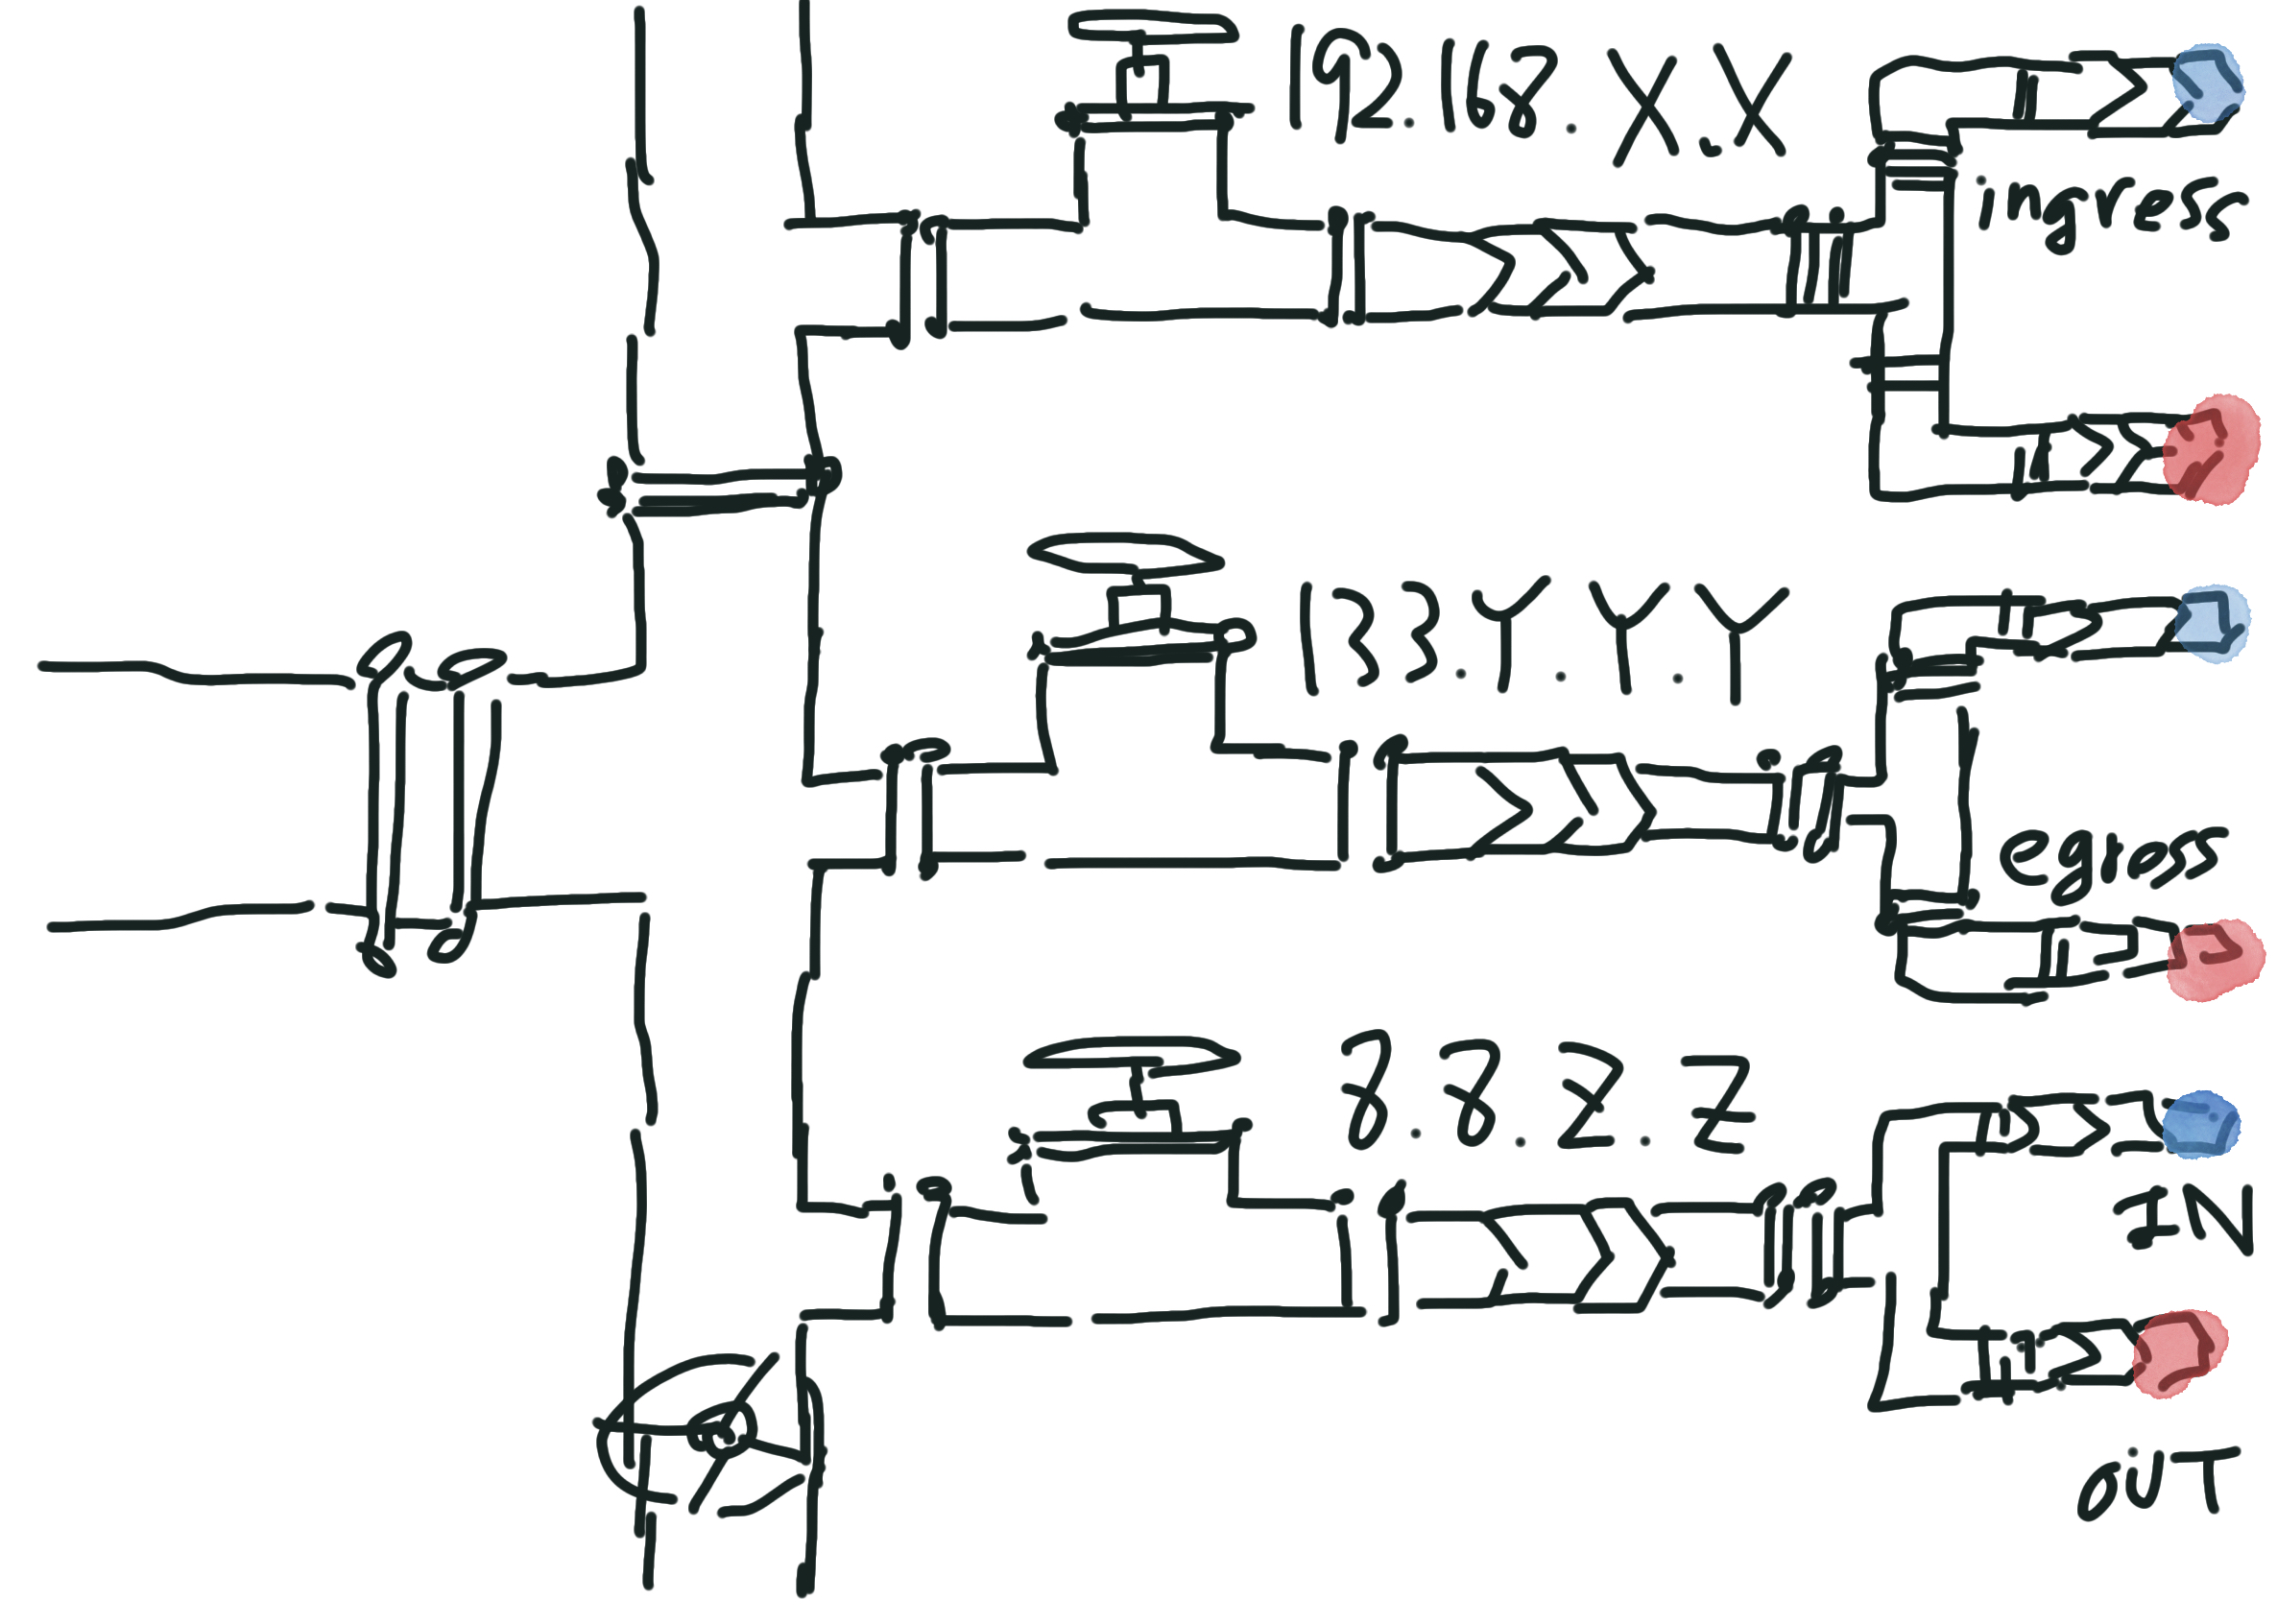 192.168.X.X
ingress
133.Y.Y.Y
egress
8.8.Z.Z
IN
OUT